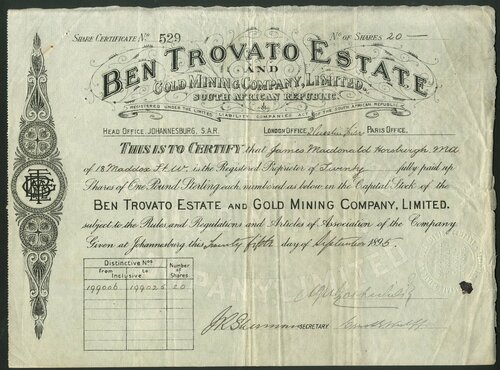 SHARE CERTIFICATE No 529 No OF SHARES 20
BEN TROVATO ESTATE
AND
GOLD MINING COMPANY, LIMITED.
SOUTH AFRICAN REPUBLIC.
REGISTERED UNDER THE LIMITED LIABILITY COMPANIES ACT OF THE SOUTH AFRICAN REPUBLIC
HEAD OFFICE JOHANNESBURG, S.A.R. LONDON OFFICE PARIS OFFICE.
THIS IS TO CERTIFY that James Macdonald Horsburgh, M.A
of 18 Maddox St W. is the Registered Proprietor of Twenty fully paid up
Shares of One Pound Sterling each, numbered as below in the Capital Stock of the
BEN TROVATO ESTATE AND GOLD MINING COMPANY, LIMITED.
subject to the Rules and Regulations and Articles of Association of the Company
Given at Johannesburg this Twenty fifth day of September 1895.
Distinctive Nos.
From to Inclusive. Number of Shares
199006 199025 20
SECRETARY